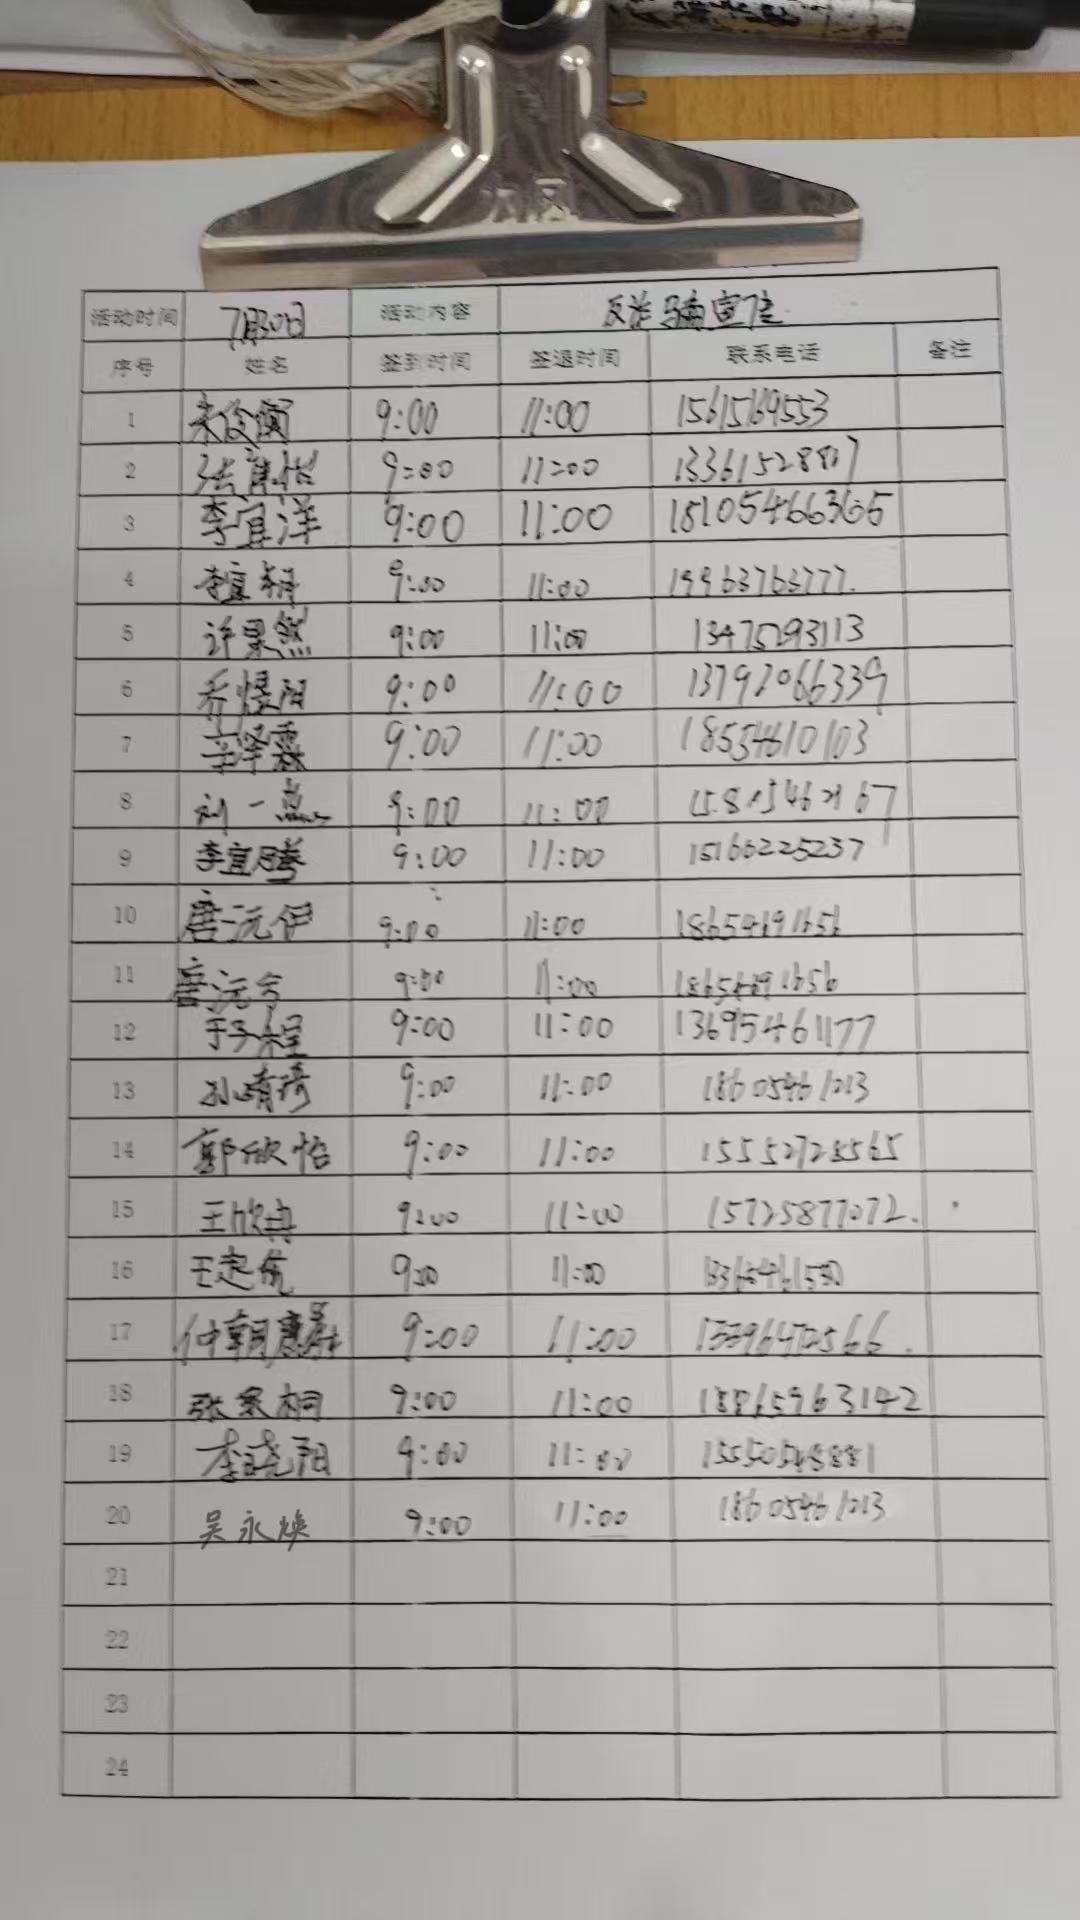 活动时间 7月30日 活动内容 反诈骗宣传
序号 姓名 签到时间 签退时间 联系电话 备注
1 9:00 11:00 15615169553
2 9:00 11:00
3 李宜洋 9:00 11:00 18105466365
4 9:00 11:00 19963763777.
5 许果然 9:00 11:00 13475293113
6 乔煜阳 9:00 11:00 13792066339
7 辛泽霖 9:00 11:00 18554610103
8 刘一 9:00 11:00
9 李宜腾 9:00 11:00 15166225237
10 唐沅伊 9:00 11:00
11 唐沅兮 9:00 11:00
12 于子程 9:00 11:00 13695461177
13 孙靖琦 9:00 11:00 18605461213
14 郭欣怡 9:00 11:00 15552728565
15 王欣冉 9:00 11:00 15725877072.
16 王起航 9:00 11:00
17 9:00 11:00
18 张家桐 9:00 11:00 18865963142
19 李晓阳 9:00 11:00 15550548881
20 吴永焕 9:00 11:00 18605461213
21
22
23
24